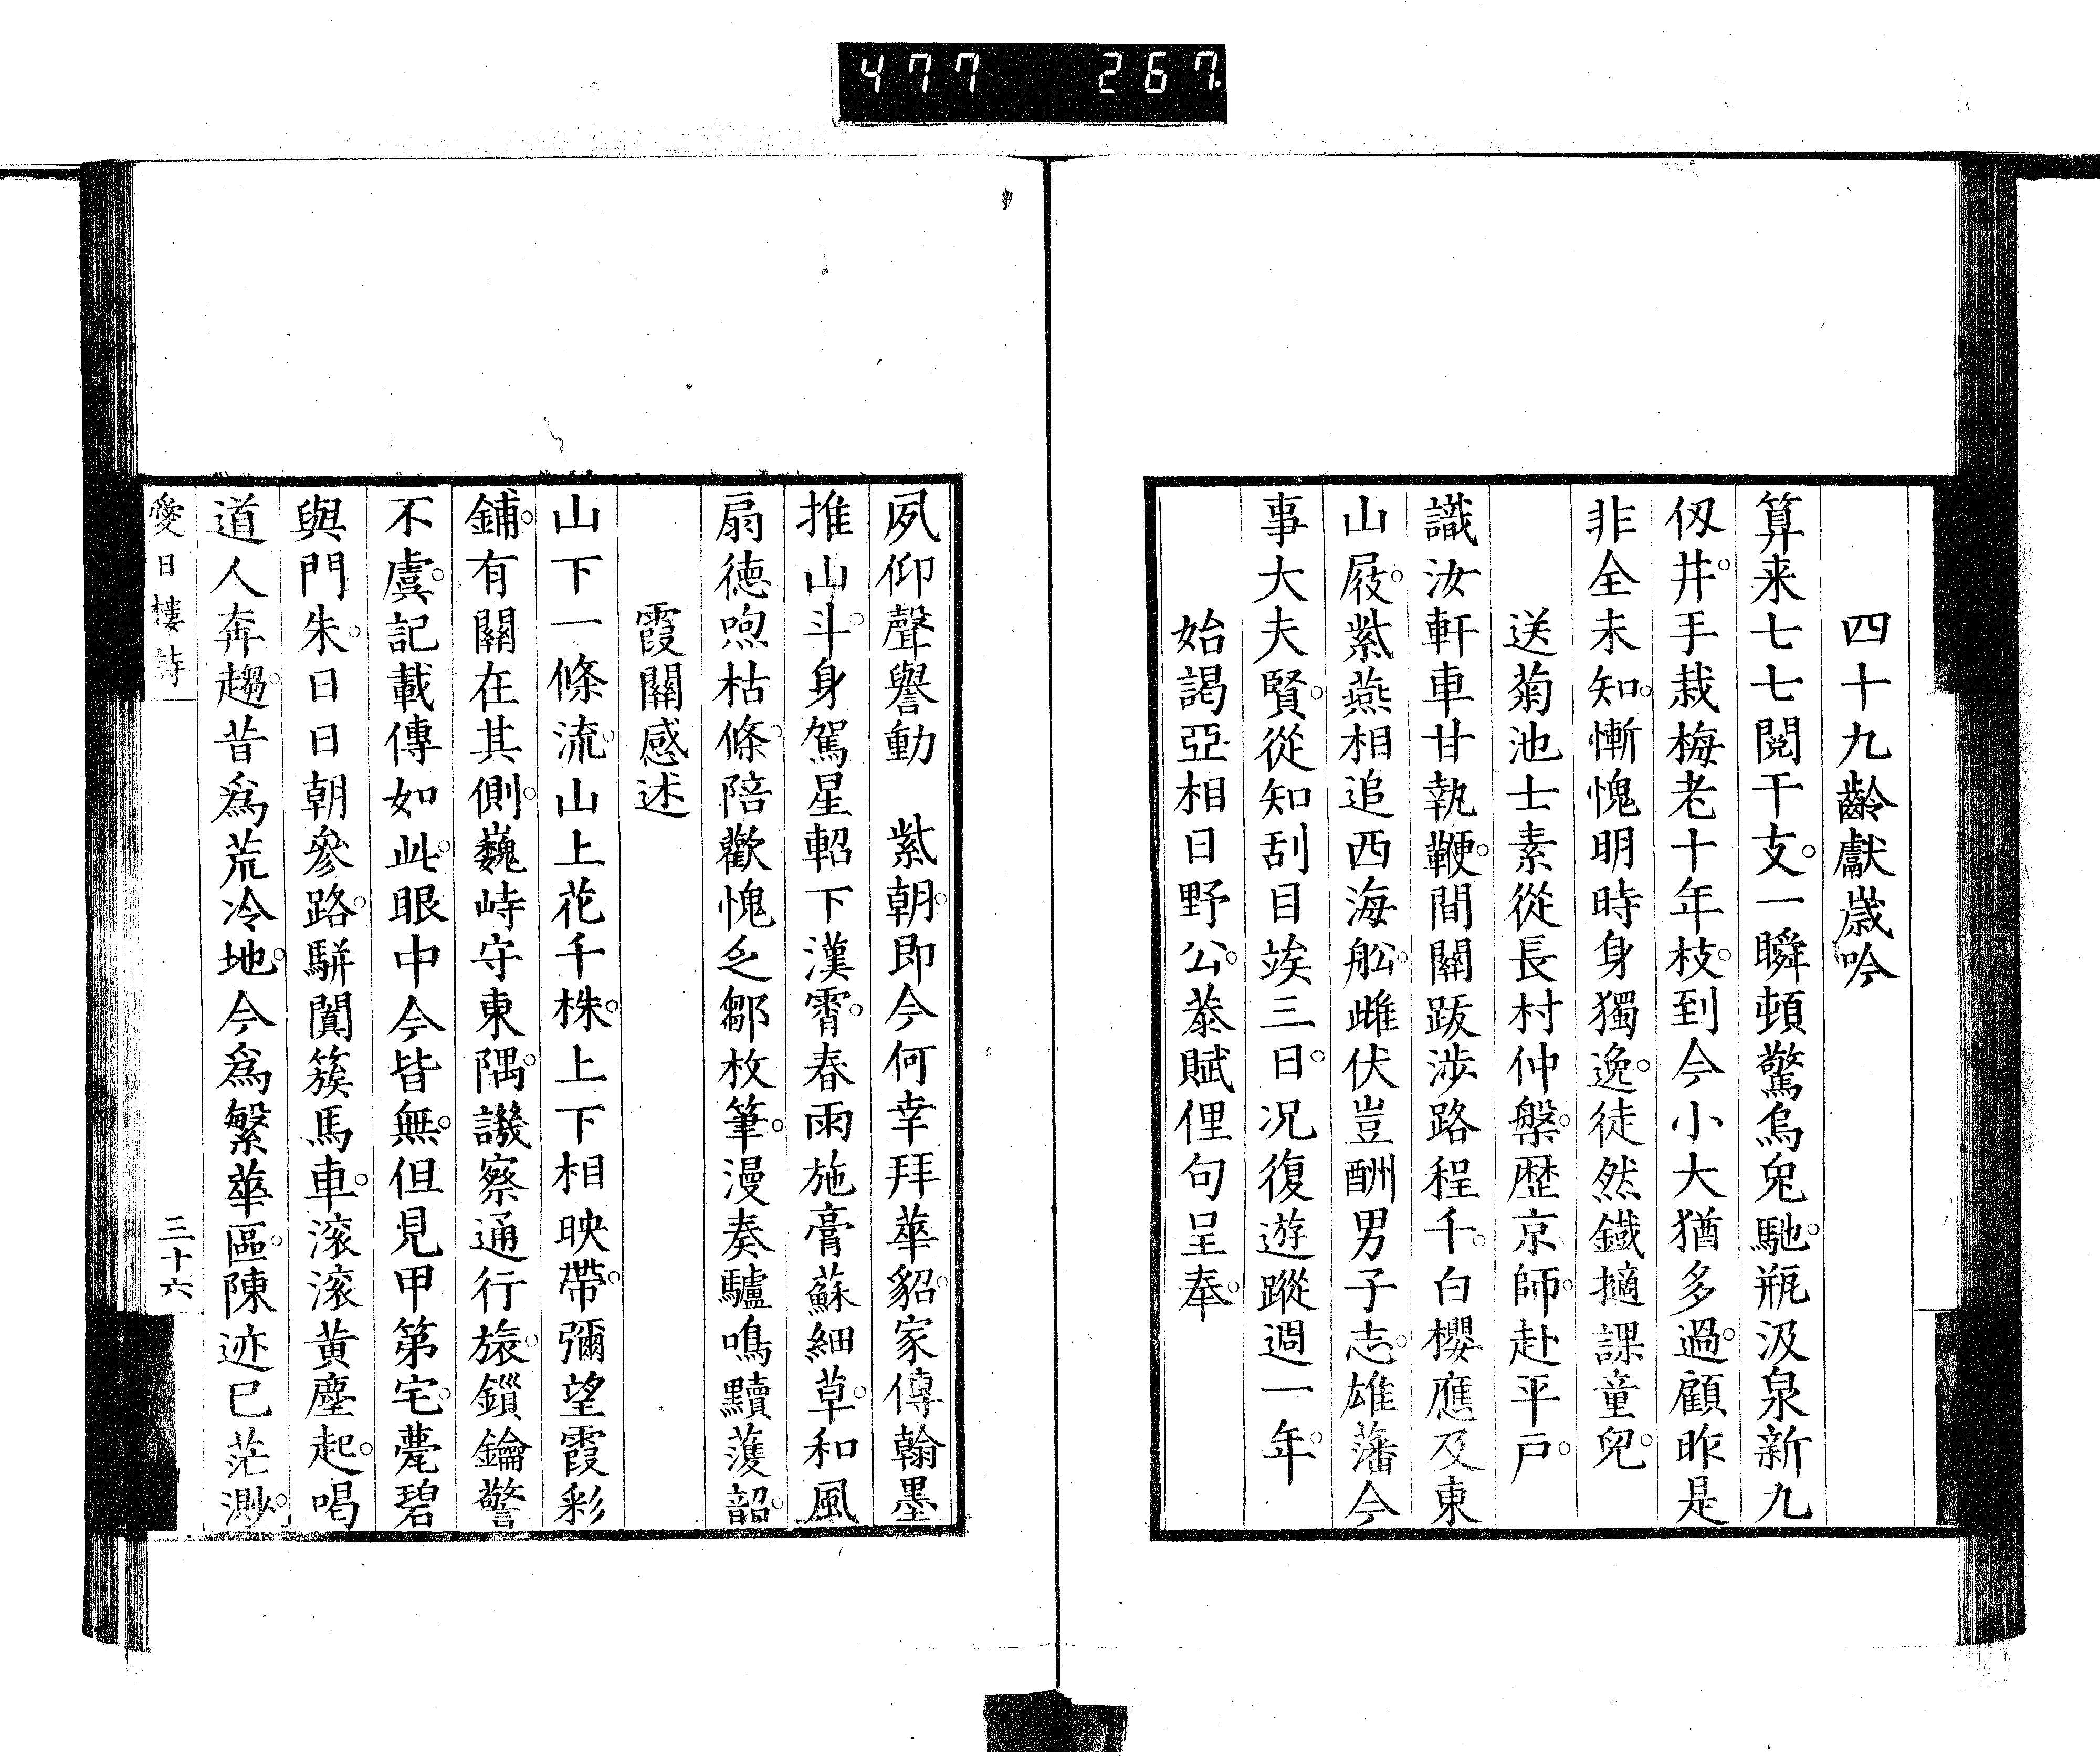 477 267
四十九齡獻歳吟
算来七七閲干支。一瞬頓驚烏兔馳。瓶汲泉新九
仭井。手栽梅老十年枝。到今小大猶多過。顧昨是
非全未知。慚愧明時身獨逸。徒然鐡擿課童兒。
送菊池士素從長村仲槃。歴京師。赴平戸。
識汝軒車甘執鞭。間關跋涉路程千。白櫻應及東
山屐。紫燕相追西海舩。雌伏豈酬男子志。雄藩今
事大夫賢。從知刮目竢三日。况復遊蹤週一年。
始謁亞相日野公。恭賦俚句呈奉。
夙仰聲譽動　紫朝。即今何幸拜華貂。家傳翰墨
推山斗。身駕星軺下漢霄。春雨施膏蘇細草。和風
扇徳喣枯條。陪歡愧乏鄒枚筆。漫奏驢鳴黷蒦韶。
霞關感述
山下一條流。山上花千株。上下相映帶。彌望霞彩
鋪。有關在其側。巍峙守東隅。譏察通行旅。鎻鑰警
不虞。記載傳如此。眼中今皆無。但見甲第宅。甍碧
與門朱。日日朝參路。駢闐簇馬車。滚滚黄塵起。喝
道人奔趨。昔爲荒冷地。今爲繁華區。陳迹已茫渺。
愛日樓詩
三十六